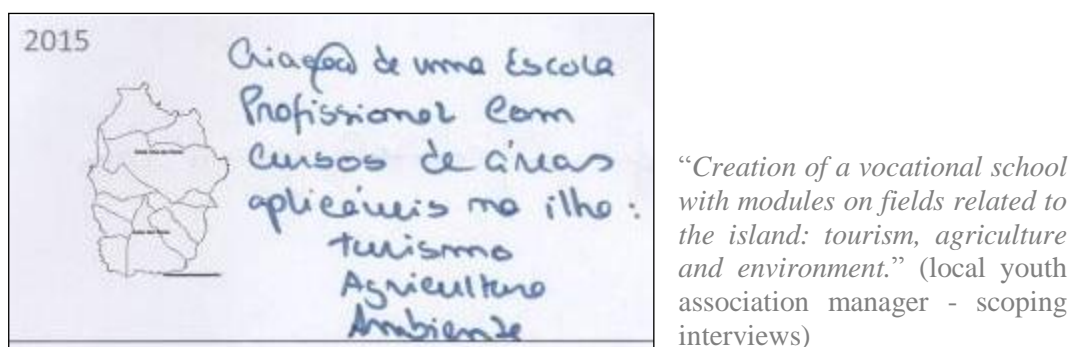 2015
Criação de uma Escola
Profissional com
cursos de áreas
aplicáveis na ilha:
turismo
Agricultura
Ambiente
“Creation of a vocational school
with modules on fields related to
the island: tourism, agriculture
and environment.” (local youth
association manager - scoping
interviews)